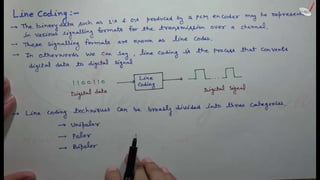 Line Coding :-
→ The binary data such as 1's & 0's produced by a PCM encoder may be represented
in various signalling formats for the transmission over a channel.
→ These signalling formats are known as line codes.
→ In otherwords we can say, line coding is the process that converts
digital data to digital signal
110010
Digital data
Line
Coding
Digital Signal
→ Line coding techniques can be broadly divided into three categories.
→ Unipolar
→ Polar
→ Bipolar